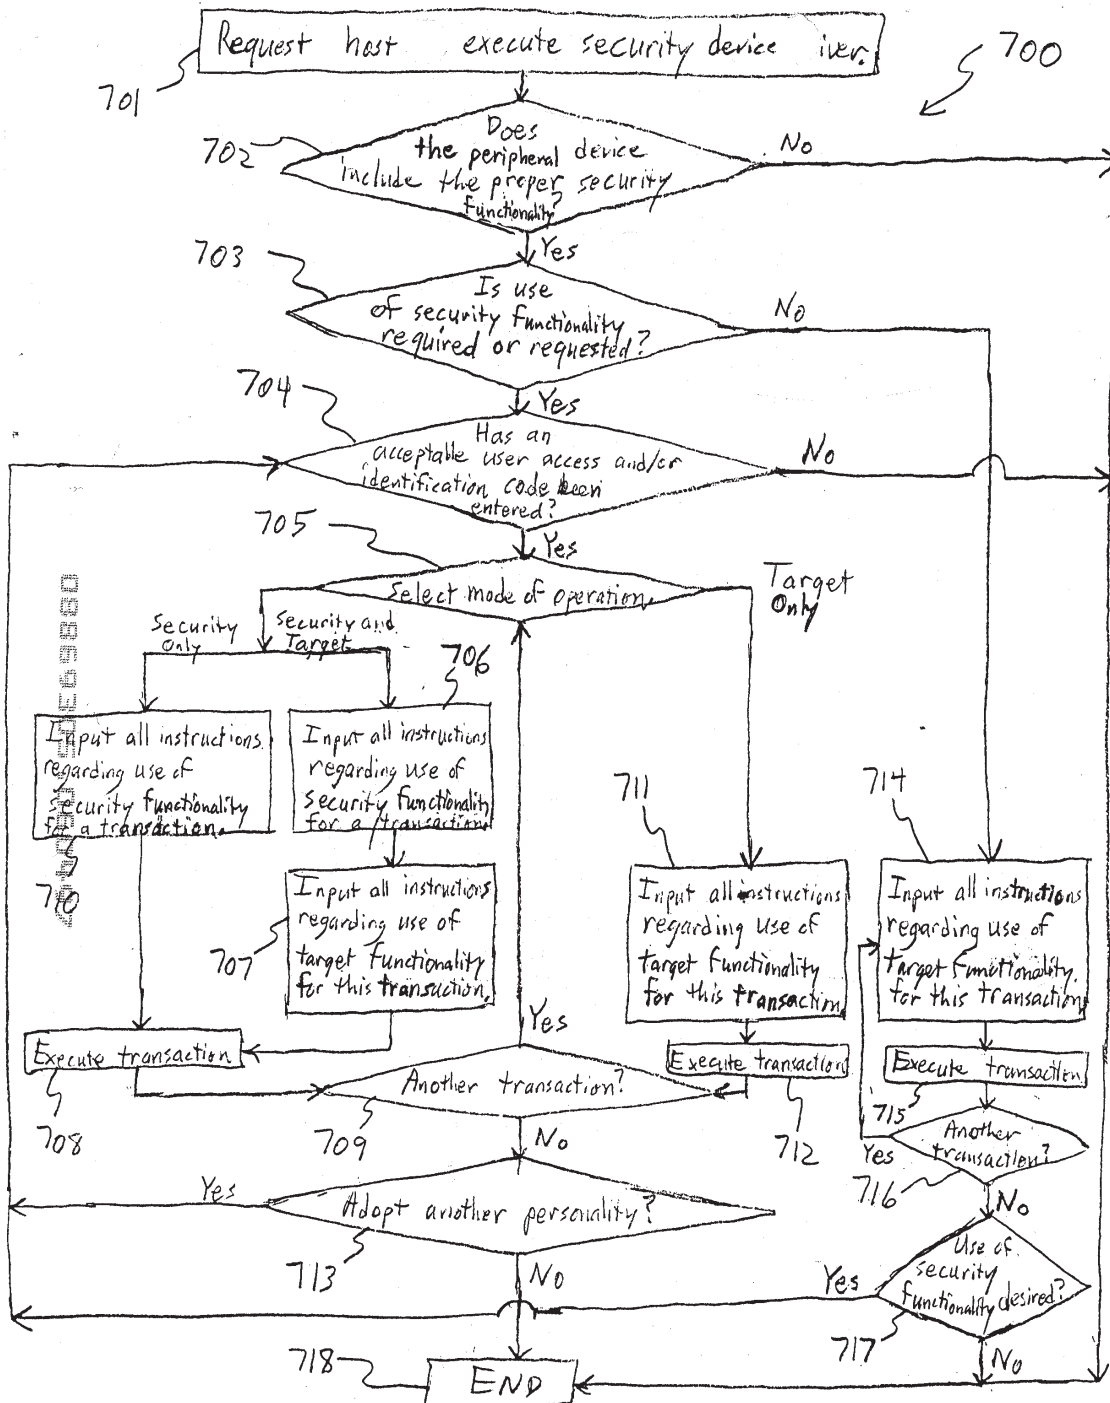 Request host execute security device iver.
700
701
Does
the peripheral device
include the proper security
functionality?
702
No
Yes
703
Is use
of security functionality
required or requested?
No
Yes
704
Has an
acceptable user access and/or
identification code been
entered?
No
Yes
705
Select mode of operation.
Target
Only
Security
Only
Security and
Target
706
Input all instructions
regarding use of
security functionality
for a transaction.
710
Input all instructions
regarding use of
security functionality
for a transaction.
711
714
Input all instructions
regarding use of
target functionality
for this transaction.
707
Input all instructions
regarding use of
target functionality
for this transaction.
Input all instructions
regarding use of
target functionality
for this transaction.
Yes
Execute transaction
708
Another transaction?
709
Execute transaction
712
Execute transaction
715
Another
transaction?
Yes
716
No
No
Yes
Adopt another personality?
713
No
Use of
security
functionality desired?
Yes
717
No
718
END